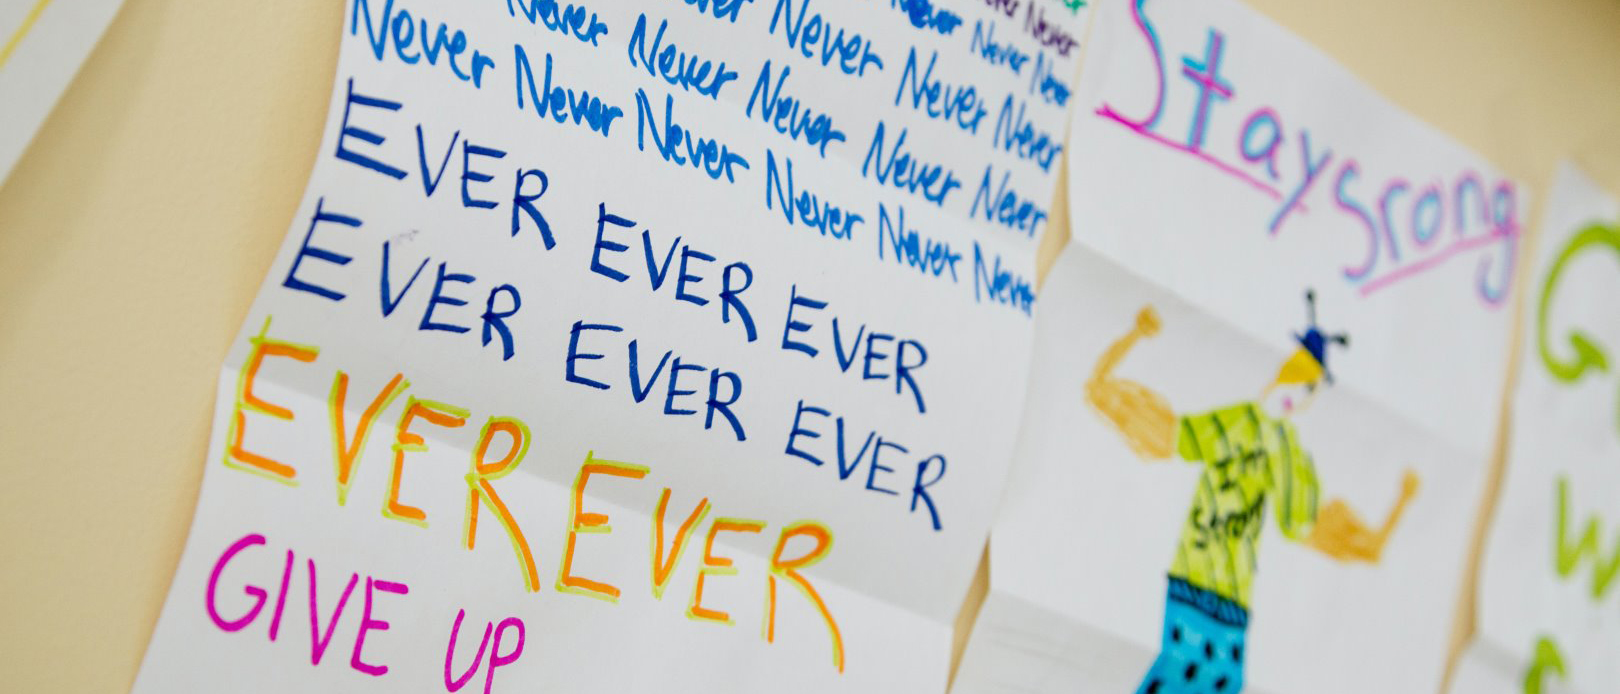 Never
Never Never Never
Never Never Never
Never Never Never Never Never
Never Never Never Never Never Never
EVER EVER EVER
EVER EVER EVER
EVER EVER
GIVE UP
Stay Srong
I'm
strong
G
W